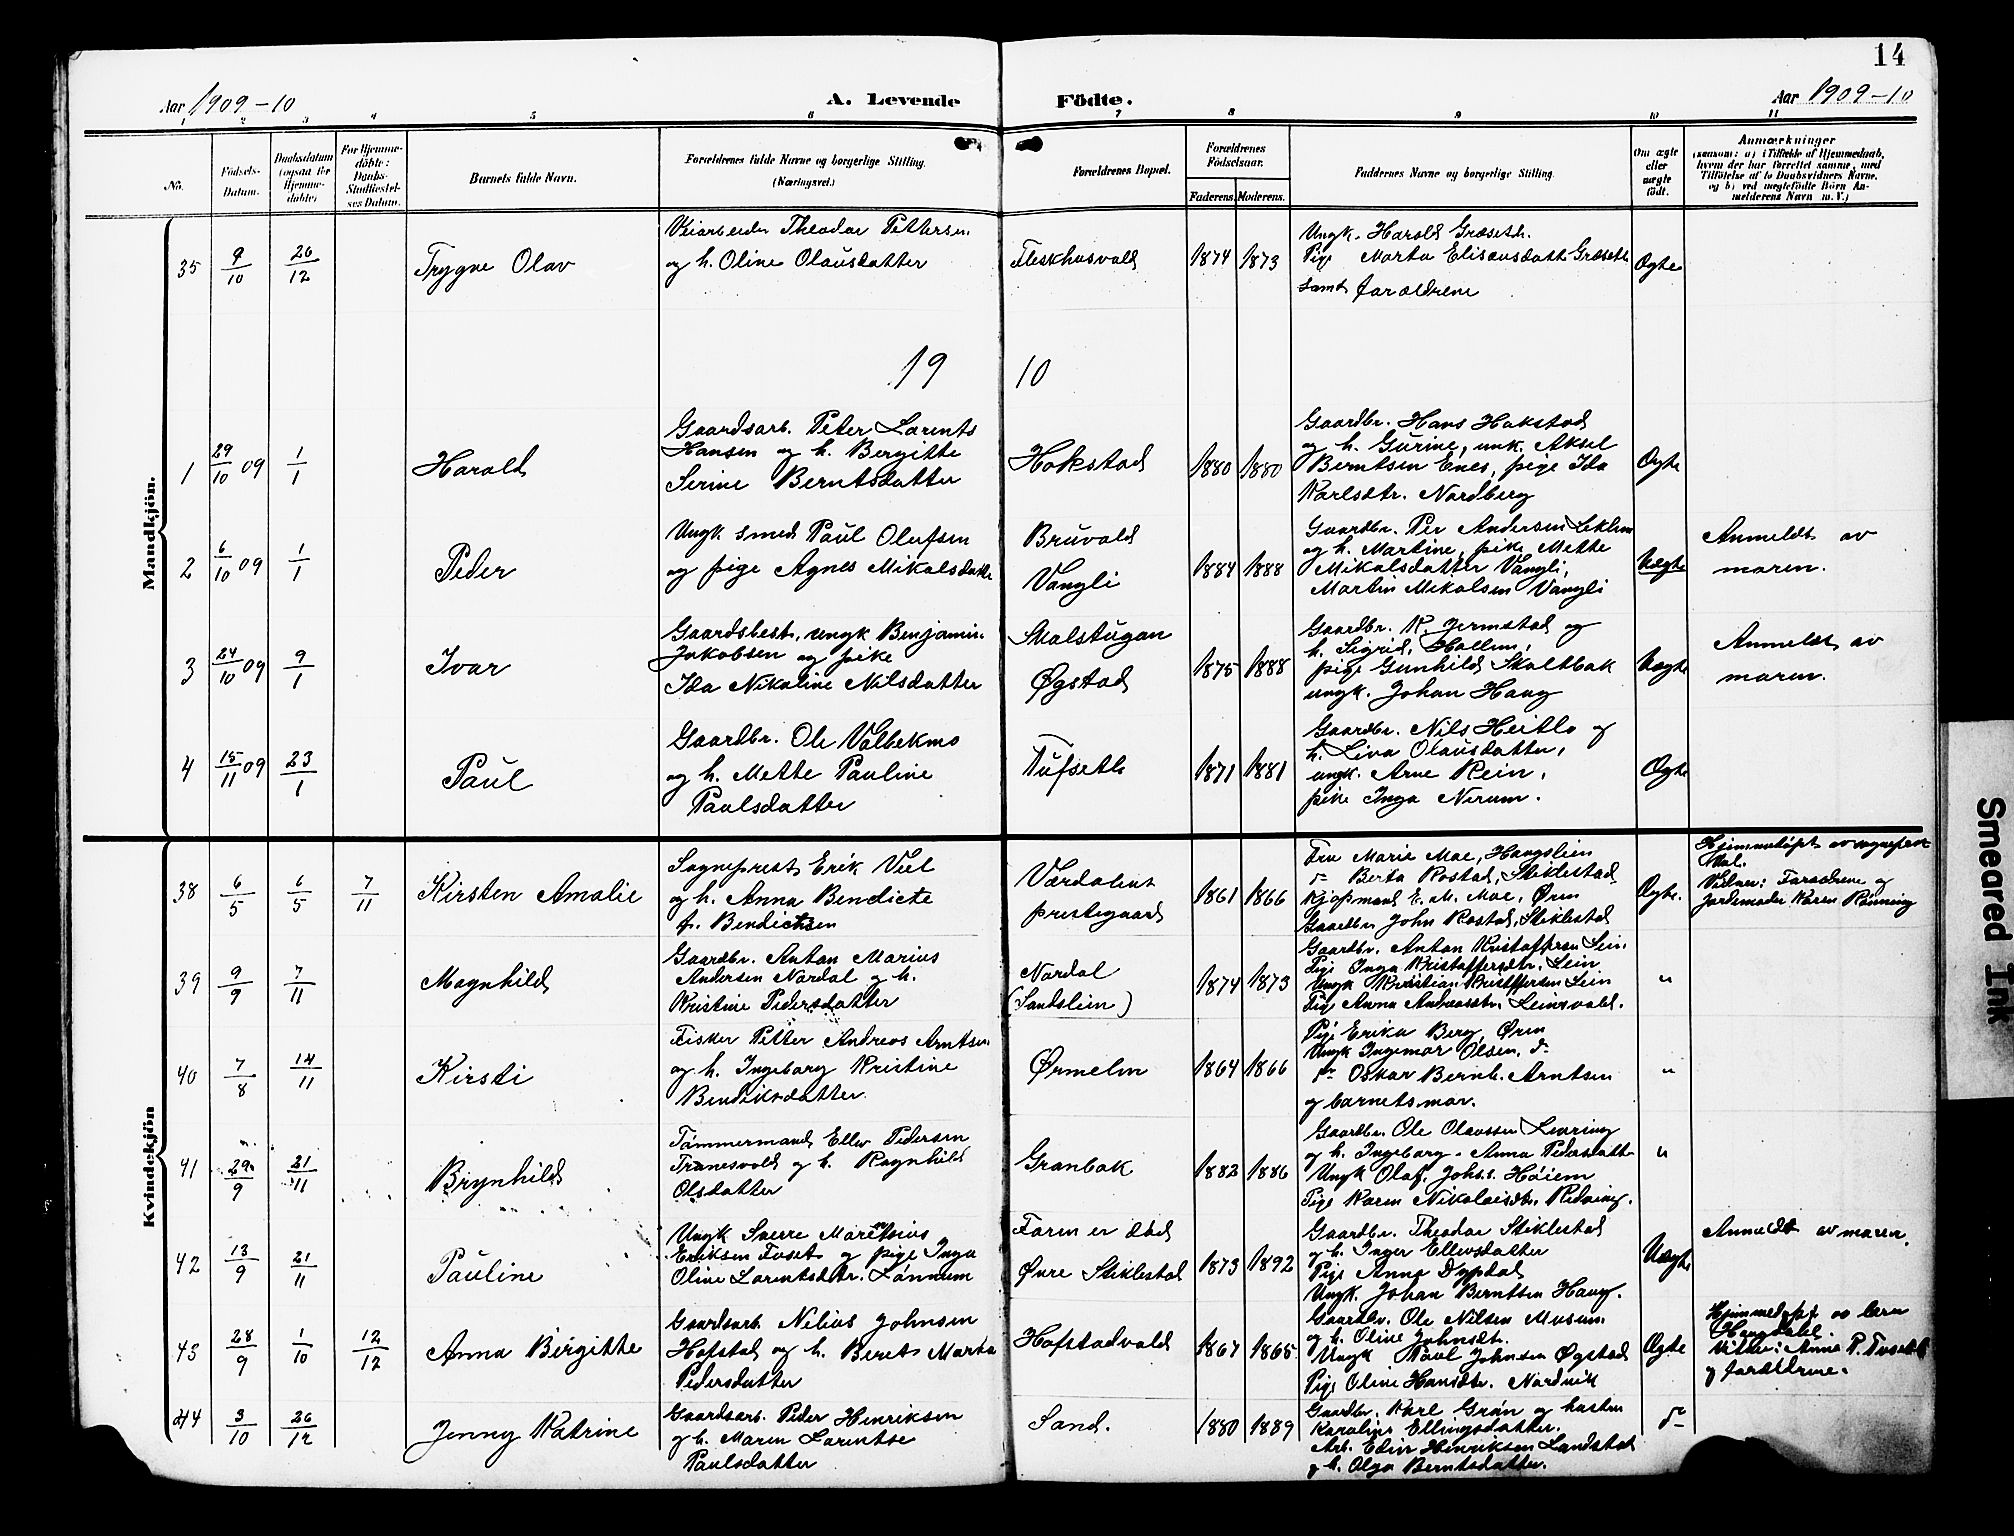 14
Aar 1909-10
A. Levende Födte.
Aar 1909-10
1 2 3 4 5 6 7 8 9 10 11
No.
Födsels-Datum.
Daabsdatum (ogsaa for Hjemme-döbte)
For Hjemme-döbte: Daabs-Stadfæstel-ses Datum.
Barnets fulde Navn.
Forældrenes fulde Navne og borgerlige Stilling. (Næringsvei.)
Forældrenes Bopæl.
Forældrenes Födselsaar.
Faderens. Moderens.
Faddernes Navne og borgerlige Stilling.
Om ægte eller uægte födt.
Anmærkninger
(saasom: a) i Tilfælde af Hjemmedaab,
hvem der har forrettet samme, med
Tilföielse af to Daabsvidners Navne,
og b) ved uægtefödte Börn An-
melderens Navn m. V.)
Mandkjön.
35 9/10 26/12 Trygve Olav
Veiarbeider Theodor Pettersen
og h. Oline Olausdatter
Fleskhusvald 1874 1873
Ungk. Harald Græseth.
Pige Marta Elisæusdatt. Græseth
samt forældrene
Ægte
19 10
1 29/10 09 1/1 Harald
Gaardsarb. Peter Lorents
Hansen og h. Bergitte
Serine Berntsdatter
Hokstad 1880 1880
Gaardbr. Hans Hokstad
og h. Gurine, unk. Aksel
Berntsen Enes, pige Ida
Karlsdtr. Nordberg
Ægte
2 6/10 09 1/1 Peder
Ungk smed Paul Olufsen
og pige Agnes Mikalsdatte
Bruvald
Vangli
1884 1888
Gaardbr. Per Andersen Leklem
og h. Martine, pike Mette
Mikalsdatter Vangli,
Martin Mikalsen Vangli
Uægte
Anmeldt av
moren.
3 24/10 09 9/1 Ivar
Gaardsbest. ungk Benjamin
Jakobsen og pike
Ida Nikoline Nilsdatter
Skalstugan
Øgstad
1875 1888
Gaardbr. K. Jermstad og
h. Sigrid, Hallem,
pige Gunhild Skaltbak
ungk. Johan Haug
Uægte
Anmeldt av
moren.
4 15/11 09 23/1 Paul
Gaardbr. Ole Valbekmo
og h. Mette Pauline
Paulsdatter
Tufseth 1871 1881
Gaardbr. Nils Heitlo og
h. Liva Olausdatter,
ungk. Arne Rein,
pike Inga Nerum.
Ægte
Kvindekjön
38 6/5 6/5 7/11 Kirsten Amalie
Sogneprest Erik Vul
og h. Anna Bendicte
f. Bendictsen
Værdalens
prestegaard
1861 1866
Fru Marie Moe, Haugslien
do Berta Rostad, Stiklestad
Kjøpmand E. M. Moe, Øren
Gaardbr John Rostad, Stiklestad
Ægte.
Hjemmedøpt av sogneprest
Vul.
Vidner: Forældrene og
Jordemoder Karen Rønning
39 9/9 7/11 Magnhild
Gaardbr. Anton Marius
Andersen Nordal og h.
Kristine Pedersdatter
Nordal
(Sandslein)
1874 1873
Gaardbr. Anton Kristoffersen Lein.
Pige Inga Kristoffersdtr. Lein
Ungk Kristian Kristoffersen Lein
Pige Anna Andreasdtr. Leinsvald.
"
40 7/8 14/11 Kirsti
Fisker Petter Andreas Arntsen
og h. Ingeborg Kristine
Bendiksdatter.
Ørmelen 1864 1866
Pige Erika Berg, Øren
Ungk Ingemar Olsen, do
do Oskar Bernh. Arntsen
og barnets mor.
"
41 29/9 21/11 Brynhild
Tømmermand Ellev Pedersen
Tranesvald og h. Ragnhild
Olsdatter
Granbak 1882 1886
Gaardbr. Ole Olaussen Levring
og h. Ingeborg-Anna Pedersdatt
Ungk Olaf Johs.s. Høiem
Pige Karen Nikolaisdtr. Kvelning.
"
42 13/9 21/11 Pauline
Ungk Sverre Maretbius
Eriksen Tuset og pige Inga
Oline Lorentsdtr. Lønnum
Faren er død
Øvre Stiklestad
1873 1892
Gaardbr. Theodor Stiklestad
og h. Inger Ellevsdatter
Pige Anna Dypdal
Ungk. Johan Berntsen Haug.
Uægte
Anmeldt av moren.
43 28/9 1/10 12/12 Anna Birgitte
Gaardsarb Nelius Johnsen
Hofstad og h. Beret Marta
Pedersdatter
Hofstadvald 1867 1865
Gaardbr. Ole Nilsen Musum.
og h. Oline Johnsdt.
Ungk Paul Johnsen Øgstad
Pige Oline Hansdtr. Nordvik
Ægte
Hjemmedøpt av lærer
Haugdahl.
Vitner: Anna P. Tuseth
og forældrene.
44 3/10 26/12 Jenny Katrine
Gaardsarb. Peder Henriksen
og h. Maren Lorentse
Paulsdatter
Sand. 1880 1889
Gaardbr. Karl Grøn og hustru
Karoline Ellingsdatter.
Arb. Edin Henriksen Landstad
og h. Olga Berntsdatter.
do
Smeared Ink